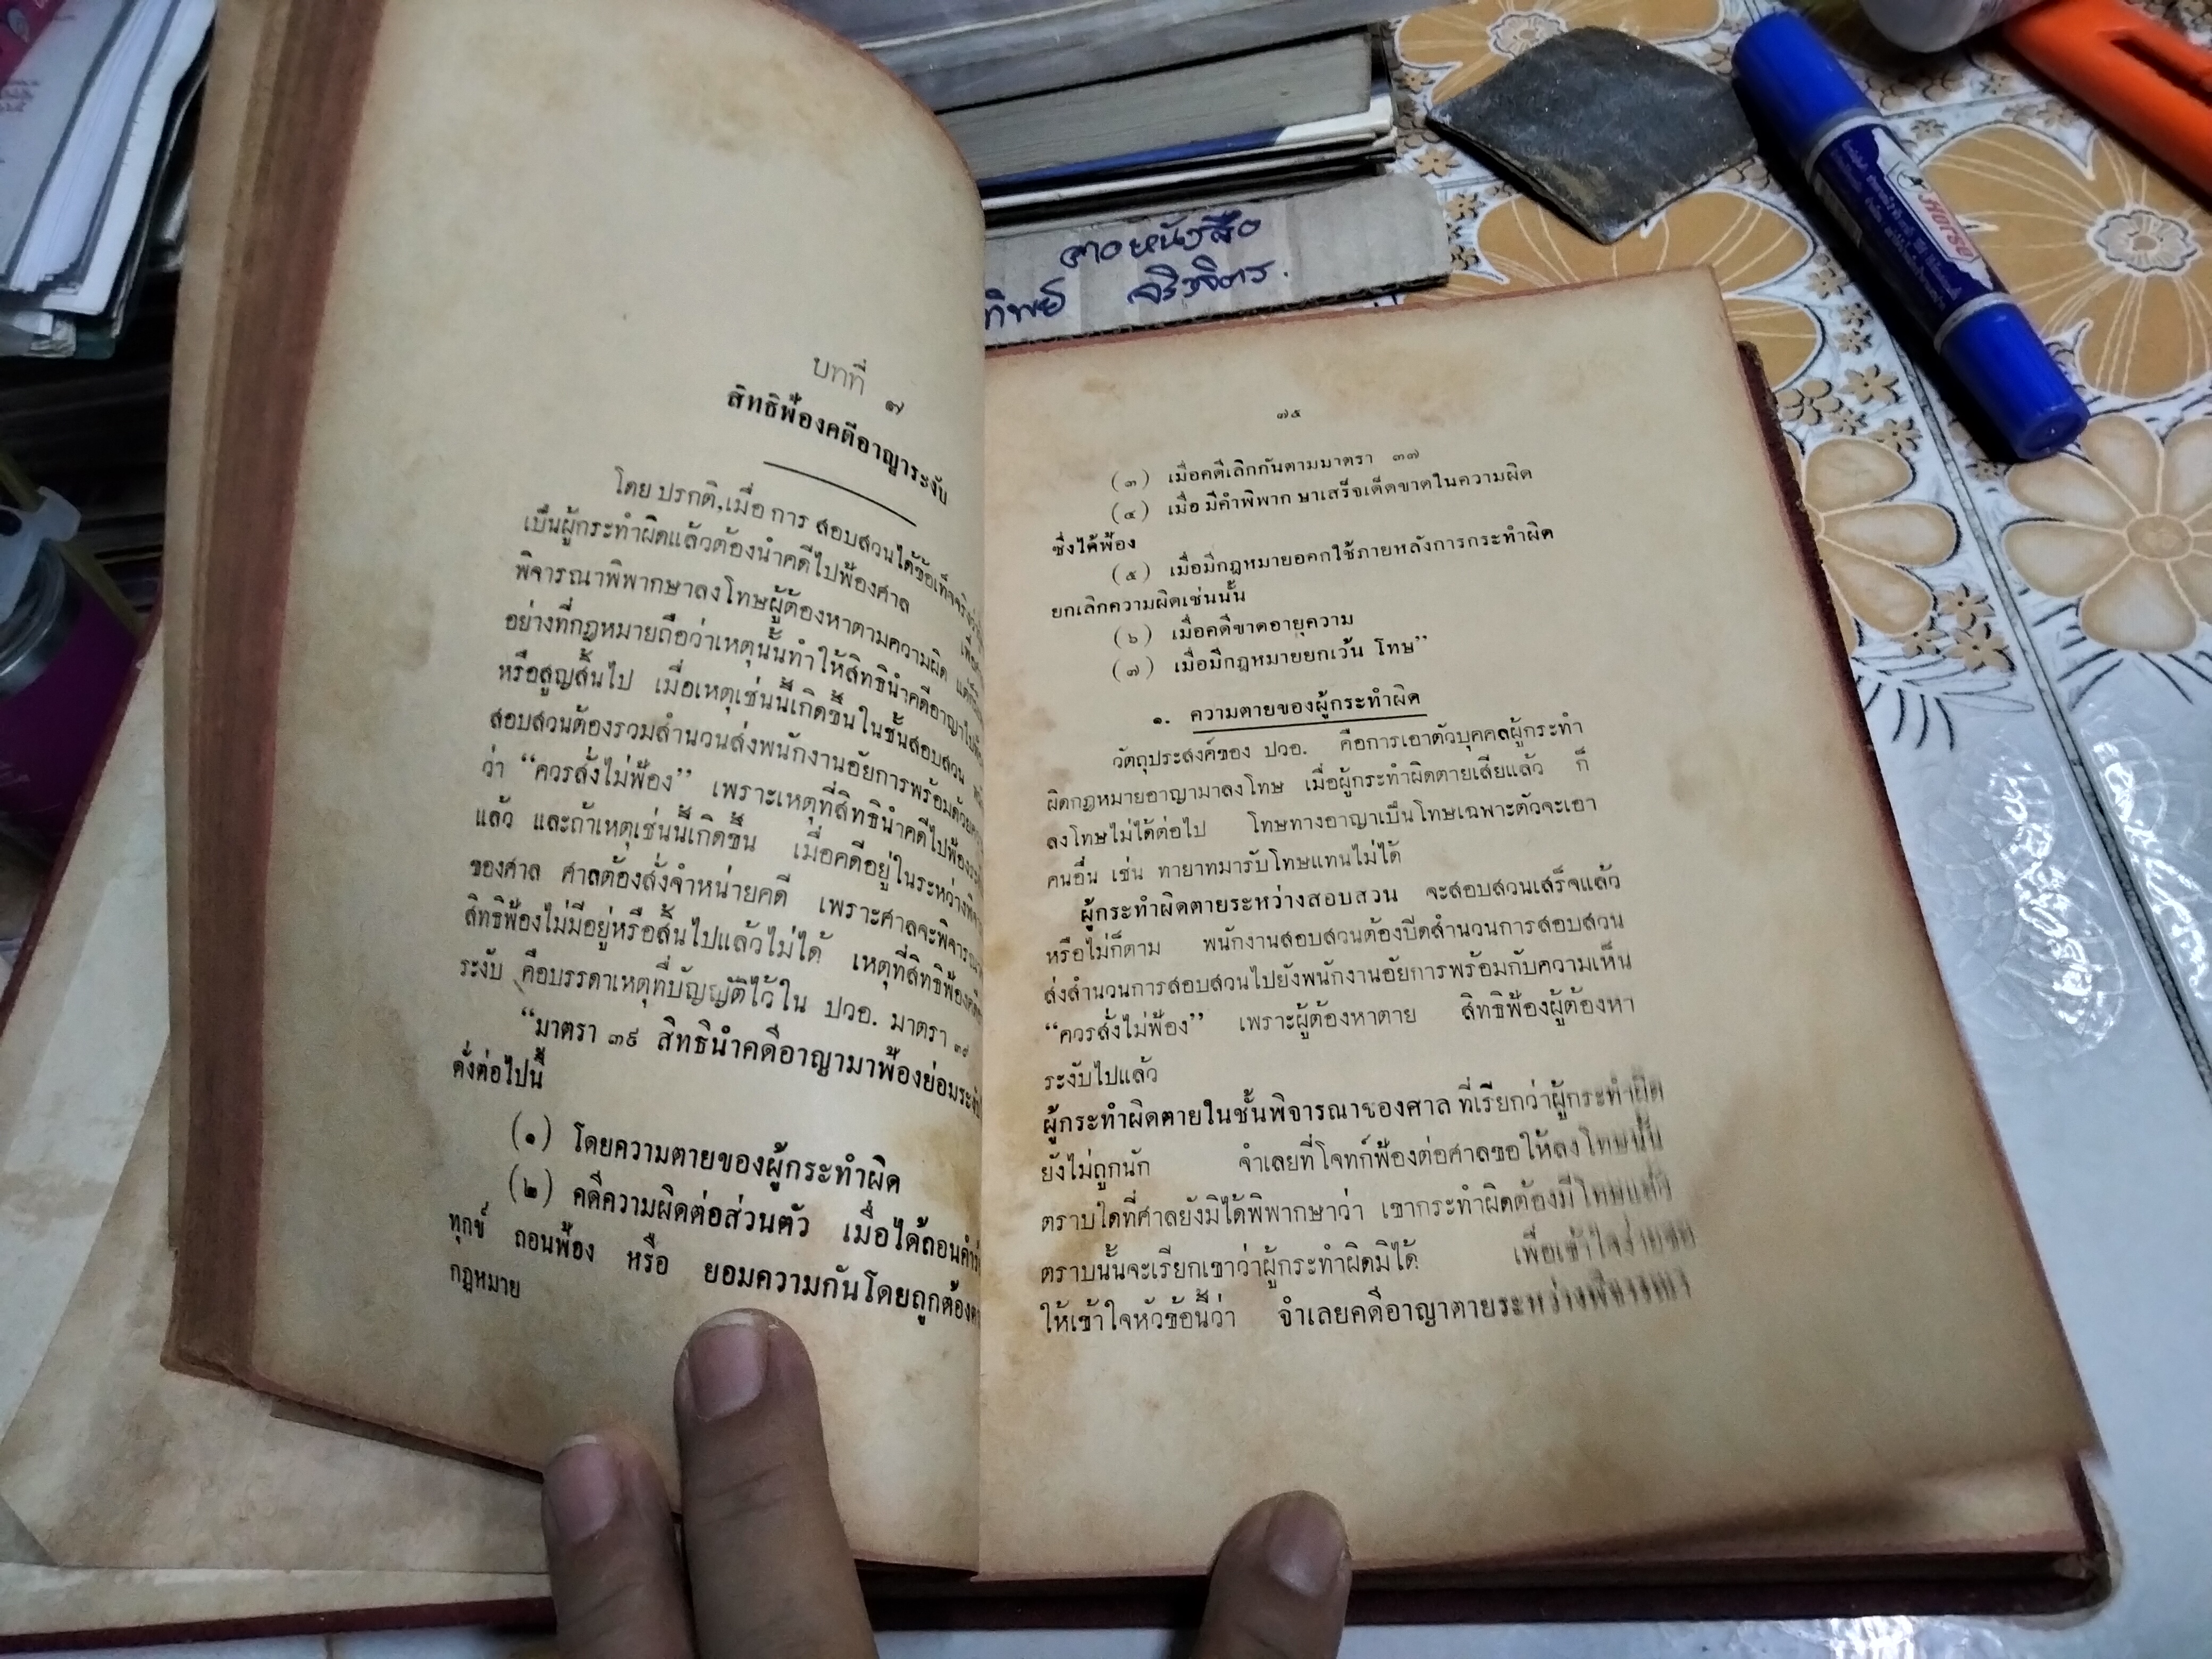 บทที่ ๗
สิทธิฟ้องคดีอาญาระงับ
โดย ปรกติ,เมื่อ การ สอบสวนได้ข้อเท็จจริง
เป็นผู้กระทำผิดแล้วต้องนำคดีไปฟ้องศาล
พิจารณาพิพากษาลงโทษผู้ต้องหาตามความผิด
อย่างที่กฎหมายถือว่าเหตุนั้นทำให้สิทธินำคดีอาญาไปฟ้อง
หรือสูญสิ้นไป เมื่อเหตุเช่นนี้เกิดขึ้นในชั้นสอบสวน
สอบสวนต้องรวมสำนวนส่งพนักงานอัยการพร้อมด้วย
ว่า “ควรสั่งไม่ฟ้อง” เพราะเหตุที่สิทธินำคดีไปฟ้อง
แล้ว และถ้าเหตุเช่นนี้เกิดขึ้น เมื่อคดีอยู่ในระหว่าง
ของศาล ศาลต้องสั่งจำหน่ายคดี เพราะศาลจะ
สิทธิฟ้องไม่มีอยู่หรือสิ้นไปแล้วไม่ได้ เหตุที่สิทธิฟ้อง
ระงับ คือบรรดาเหตุที่บัญญัติไว้ใน ปวอ. มาตรา ๓๙
“มาตรา ๓๙ สิทธินำคดีอาญามาฟ้องย่อมระงับ
ดั่งต่อไปนี้
(๑) โดยความตายของผู้กระทำผิด
(๒) คดีความผิดต่อส่วนตัว เมื่อได้ถอนคำ
ทุกข์ ถอนฟ้อง หรือ ยอมความกันโดยถูกต้อง
กฎหมาย
๗๕
(๓) เมื่อคดีเลิกกันตามมาตรา ๓๗
(๔) เมื่อ มีคำพิพาก ษาเสร็จเด็ดขาดในความผิด
ซึ่งได้ฟ้อง
(๕) เมื่อมีกฎหมายออกใช้ภายหลังการกระทำผิด
ยกเลิกความผิดเช่นนั้น
(๖) เมื่อคดีขาดอายุความ
(๗) เมื่อมีกฎหมายยกเว้น โทษ”
๑. ความตายของผู้กระทำผิด
วัตถุประสงค์ของ ปวอ. คือการเอาตัวบุคคลผู้กระทำ
ผิดกฎหมายอาญามาลงโทษ เมื่อผู้กระทำผิดตายเสียแล้ว ก็
ลงโทษไม่ได้ต่อไป โทษทางอาญาเป็นโทษเฉพาะตัวจะเอา
คนอื่น เช่น ทายาทมารับโทษแทนไม่ได้
ผู้กระทำผิดตายระหว่างสอบสวน จะสอบสวนเสร็จแล้ว
หรือไม่ก็ตาม พนักงานสอบสวนต้องปิดสำนวนการสอบสวน
ส่งสำนวนการสอบสวนไปยังพนักงานอัยการพร้อมกับความเห็น
“ควรสั่งไม่ฟ้อง” เพราะผู้ต้องหาตาย สิทธิฟ้องผู้ต้องหา
ระงับไปแล้ว
ผู้กระทำผิดตายในชั้นพิจารณาของศาล ที่เรียกว่าผู้กระทำผิด
ยังไม่ถูกนัก จำเลยที่โจทก์ฟ้องต่อศาลขอให้ลงโทษนั้น
ตราบใดที่ศาลยังมิได้พิพากษาว่า เขากระทำผิดต้องมีโทษแล้ว
ตราบนั้นจะเรียกเขาว่าผู้กระทำผิดมิได้ เพื่อเข้าใจง่ายขอ
ให้เข้าใจหัวข้อนี้ว่า จำเลยคดีอาญาตายระหว่างพิจารณา
ทิพย์ จิรวิจิตร.
Horse